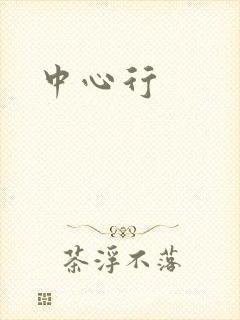 中心行
茶浮不落